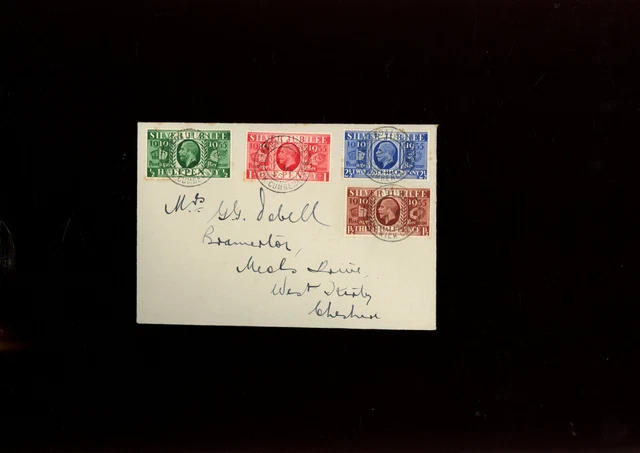 SILVER JUBILEE SILVER JUBILEE SILVER JUBILEE
1910 1935 1910 1935 1910 1935
½ HALFPENNY ½ 1 1 2½ 2½
SILVER JUBILEE
1910 1935
1½ THREE HALFPENCE 1½
Mrs G.G. Dobell
Bramerton,
Meols Drive,
West Kirby
Cheshire